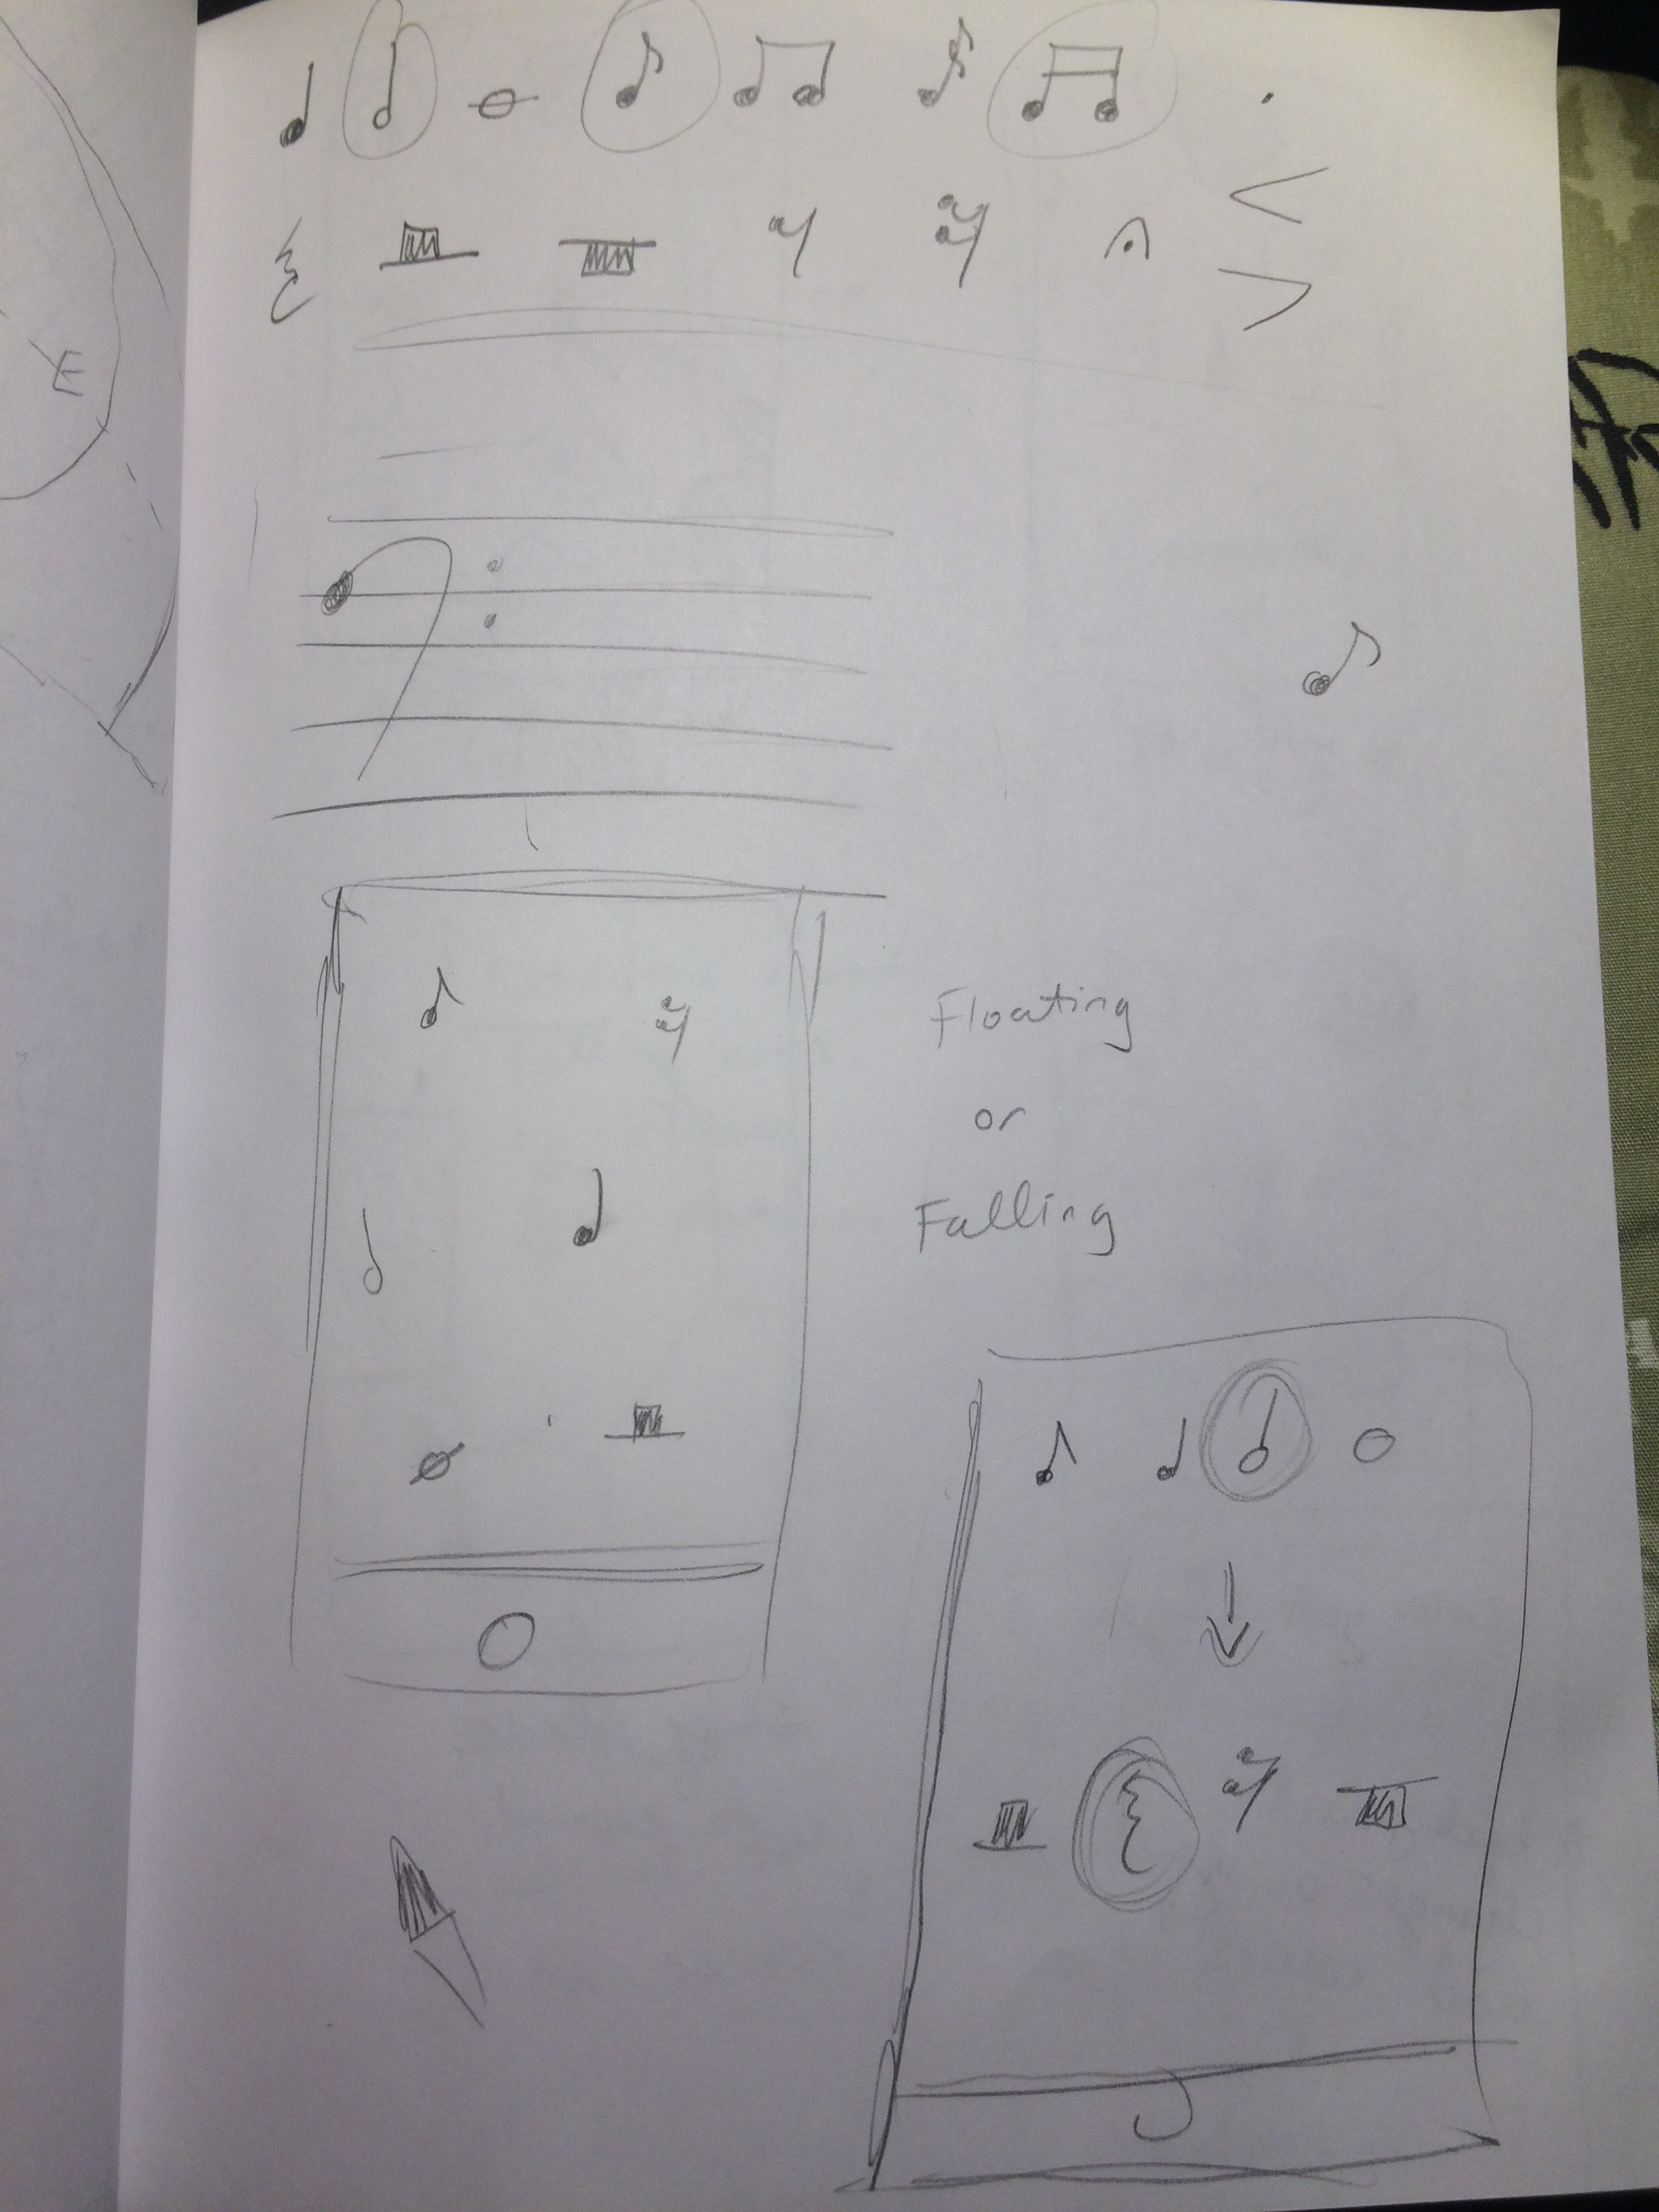 E
Floating
or
Falling